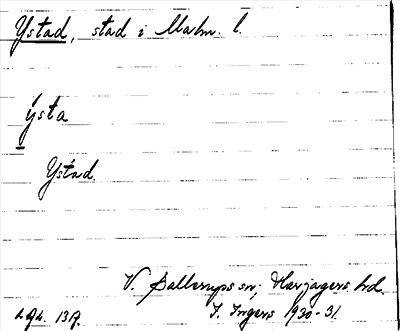 Ystad, stad i Malm. l.
ýsta
Ystad.
V. Sallerups sn; Harjagers hd.
I. Ingers 1930-31.